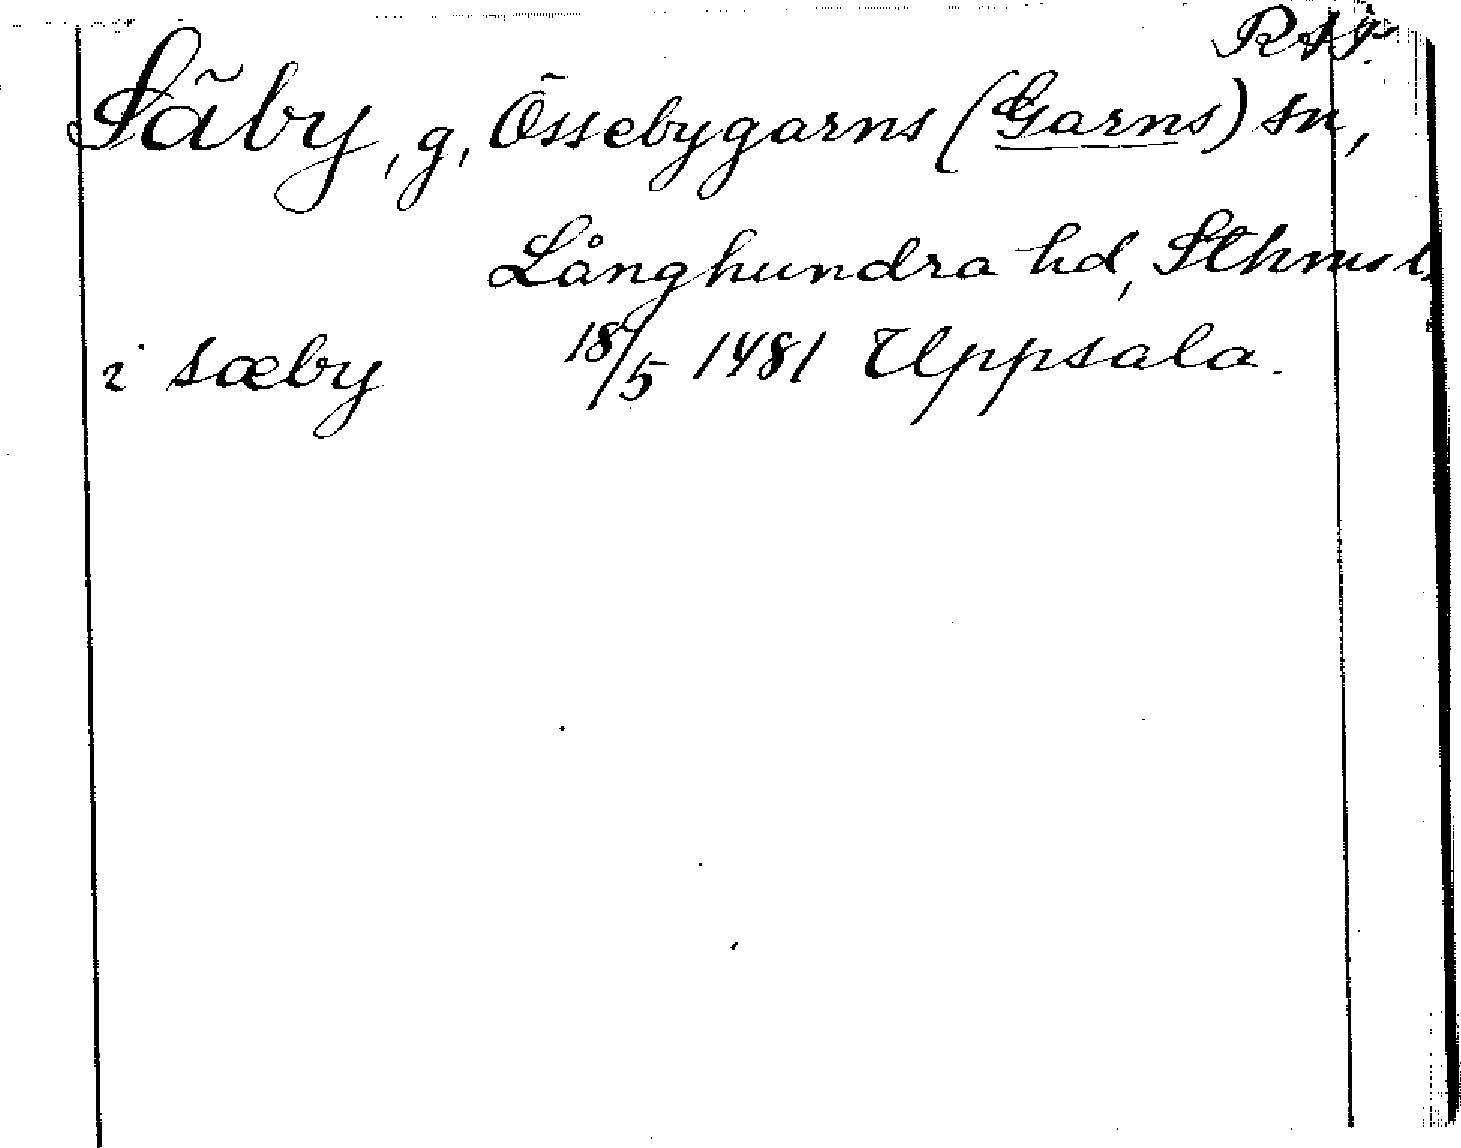 Säby, g, Össebygarns (Garns) sn,
Långhundra hd, Sthms l.
i sæby 18/5 1481 Uppsala.